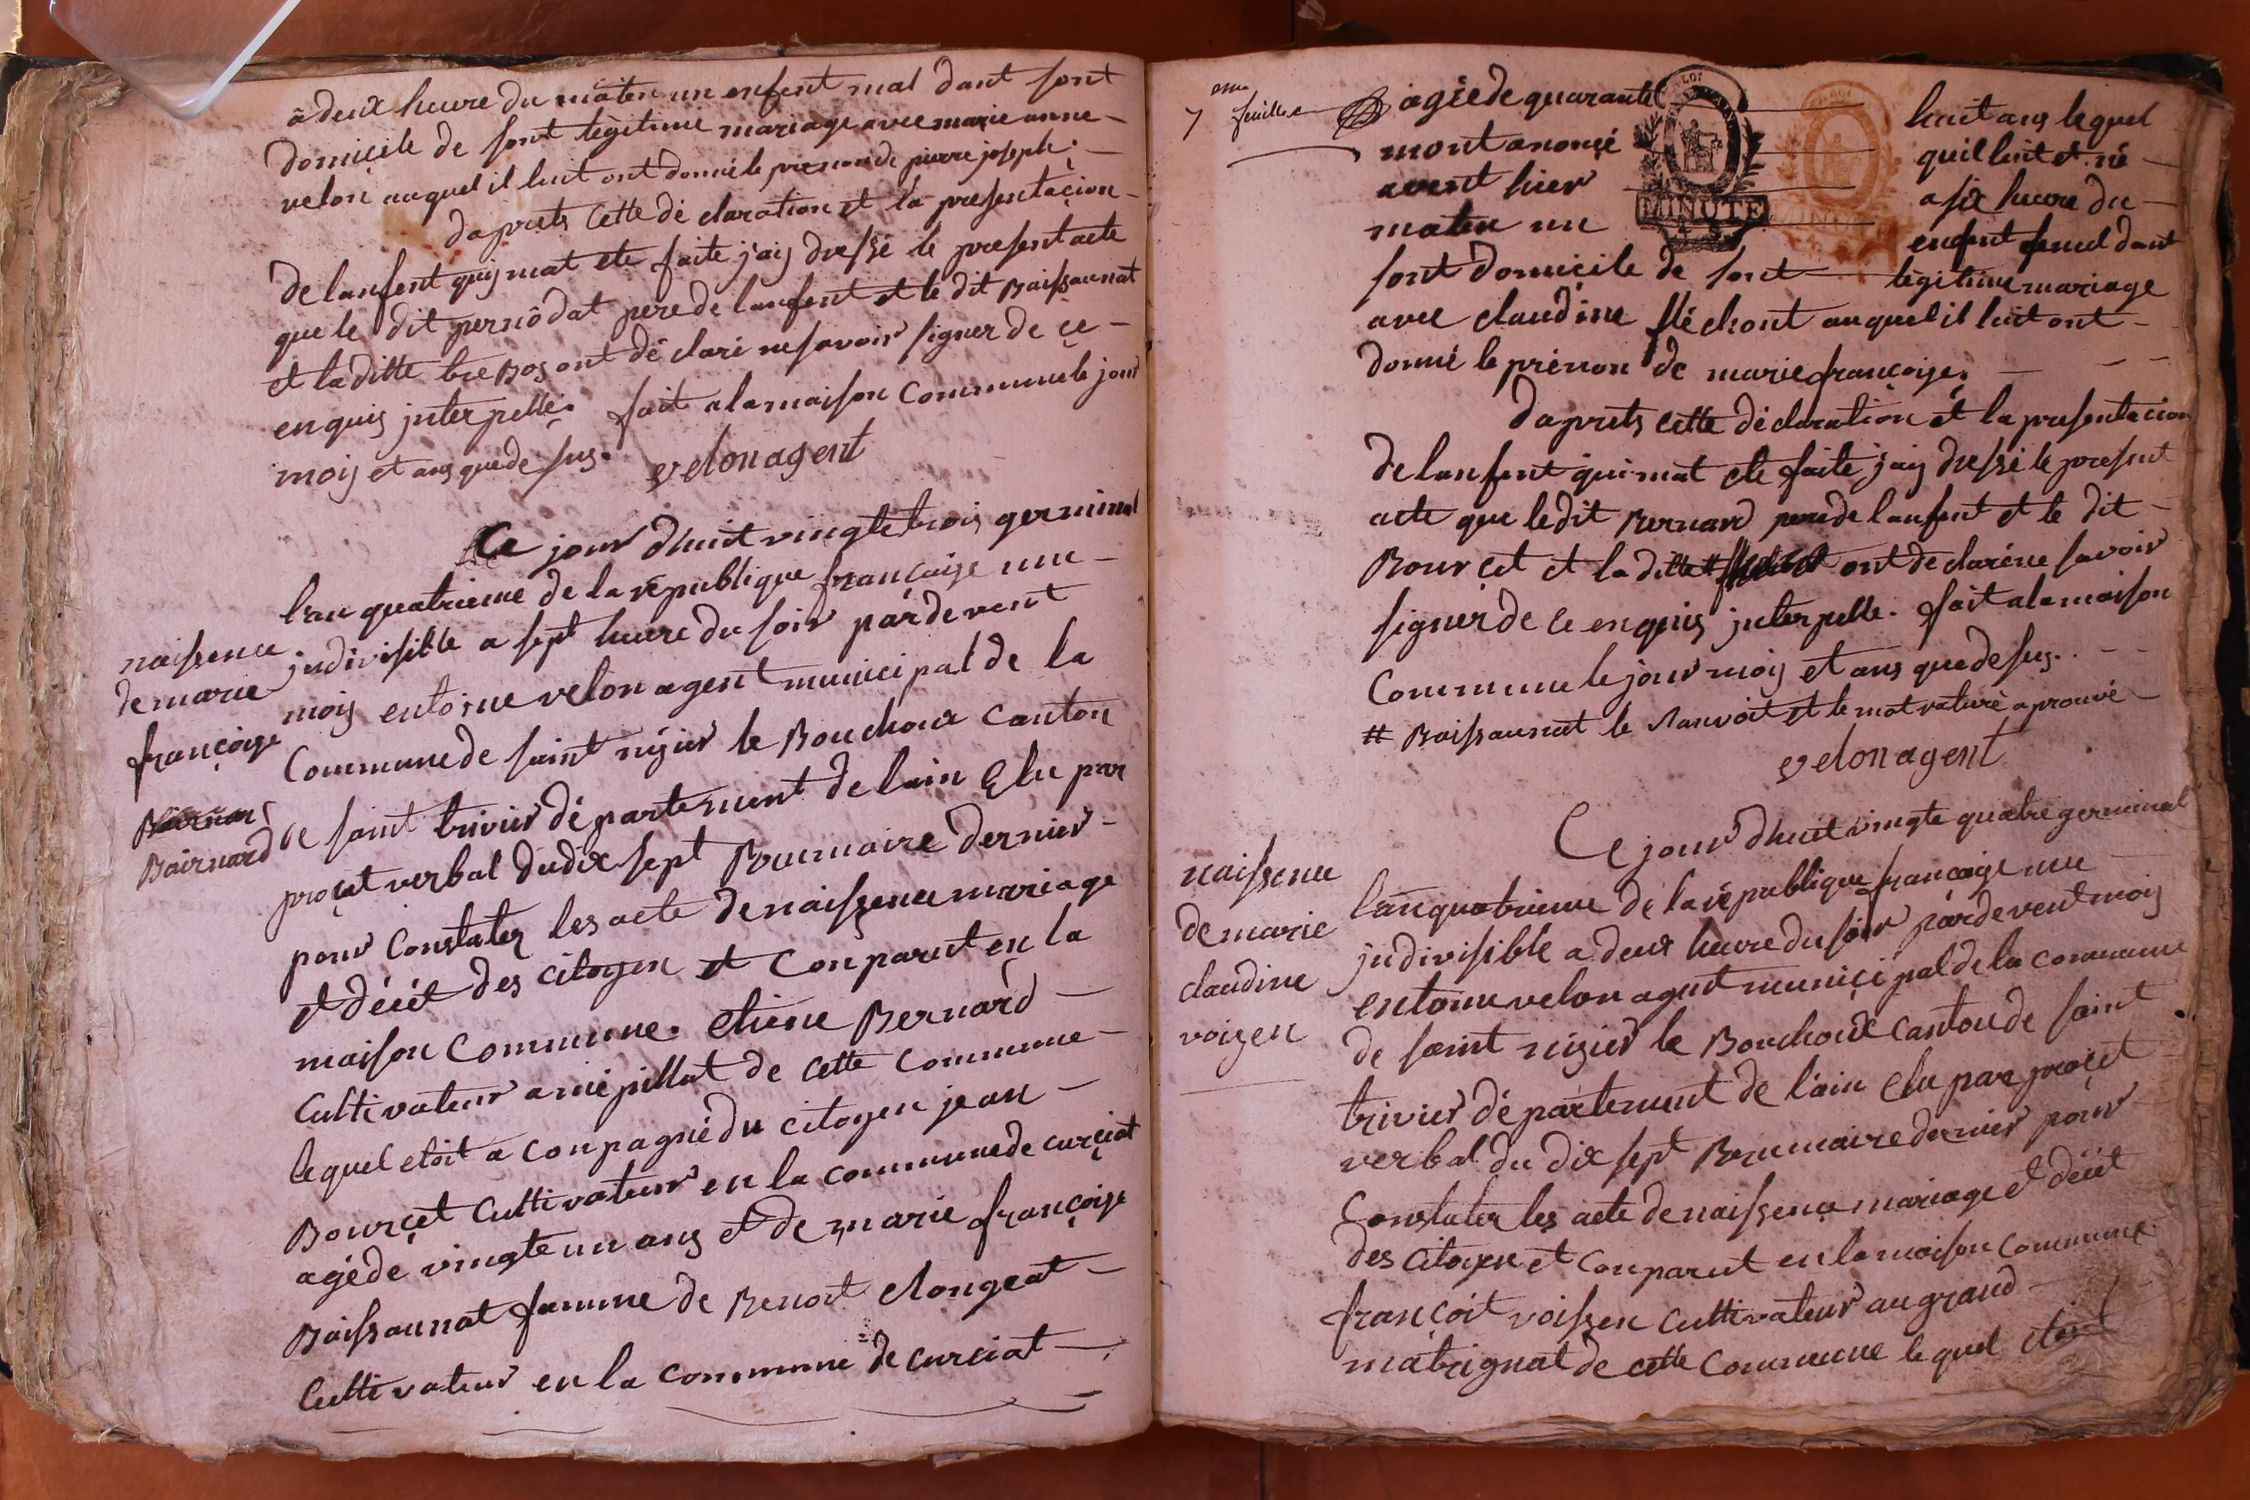 a deux heure du maten un enfent mal dant sont
domicile de sont légitime mariage avec marie anne
velon auquel il luit ont donné le prenon de pierre joseph.
daprets cette dé claration et la presentaçion
de lanfent quij mat ete faite jaij dressé le present acte
que le dit pernôdat pere de lanfent et le dit Baissaunat
et la ditte ont dé claré ne savoir signer de çe
enquis jnterpellé. fait a la maison Commune le jour
mois et ans que de sus. velon agent
Ce jour dhuit vingte trois germinal
lan quatrieme de la république françaije une
naissence
de marie
françoise
Bairnard
jndivisible a sept heure du soir pardevent
mois entoine velon agent municipal de la
Commune de saint nizier le Bouchoux Canton
de saint trivier dé partement de lain Elu par
proçet verbal du dix sept Brumaire dernier
pour Constater les acte de naissence mariage
et décét des citoyen et Conparut en la
maison Commune. etiene Bernard
Cultivateur a mépillat de cette Commune
lequel etoit a conpagné du citoyen jean
Bourçet Cultivateur en la commune de curçiat
agé de vingte un ans et de marie françoise
Baissaunat famme de Benoit clongeat
Cultivateur en la commune de curciat
7 eme feuillet
agée de quarante huit ans lequel
mont anonçé quil luit et né
avent hier a six heure du
maten un enfent femel dant
sont domiçile de sont légitime mariage
avec claudine fléchont auquel il luit ont
donné le prénon de marie françoise.
daprets cette déclaration et la presentacion
de lanfent qui mat ete faite jaij dressé le present
acte que le dit Bernard pere de lanfent et le dit
Bourçet et la ditte # ont declaré ne savoir
signer de ce enquis jnterpelle. fait a la maison
Commune le jour mois et ans que de sus.
# Baissaunat le Ranvoit et le mot raturé a prouvé
velon agent
naissence
de marie
claudine
voisen
Ce jour dhuit vingte quatre germinal
lan quatrieme de la république françaije une
jndivisible a deux heure du soir pardevent mois
entoine velon agent muniçipal de la commune
de saint nizier le Bouchoux canton de saint
trivier dé partement de l'ain Elu par proçet
verbal du dix sept Brumaire dernier pour
Constater les acte de naissence mariage et décét
des Citoyen et Conparut en la maison commune
françoit voissen Cultivateur au grand
matrignat de cette Commune lequel etoit